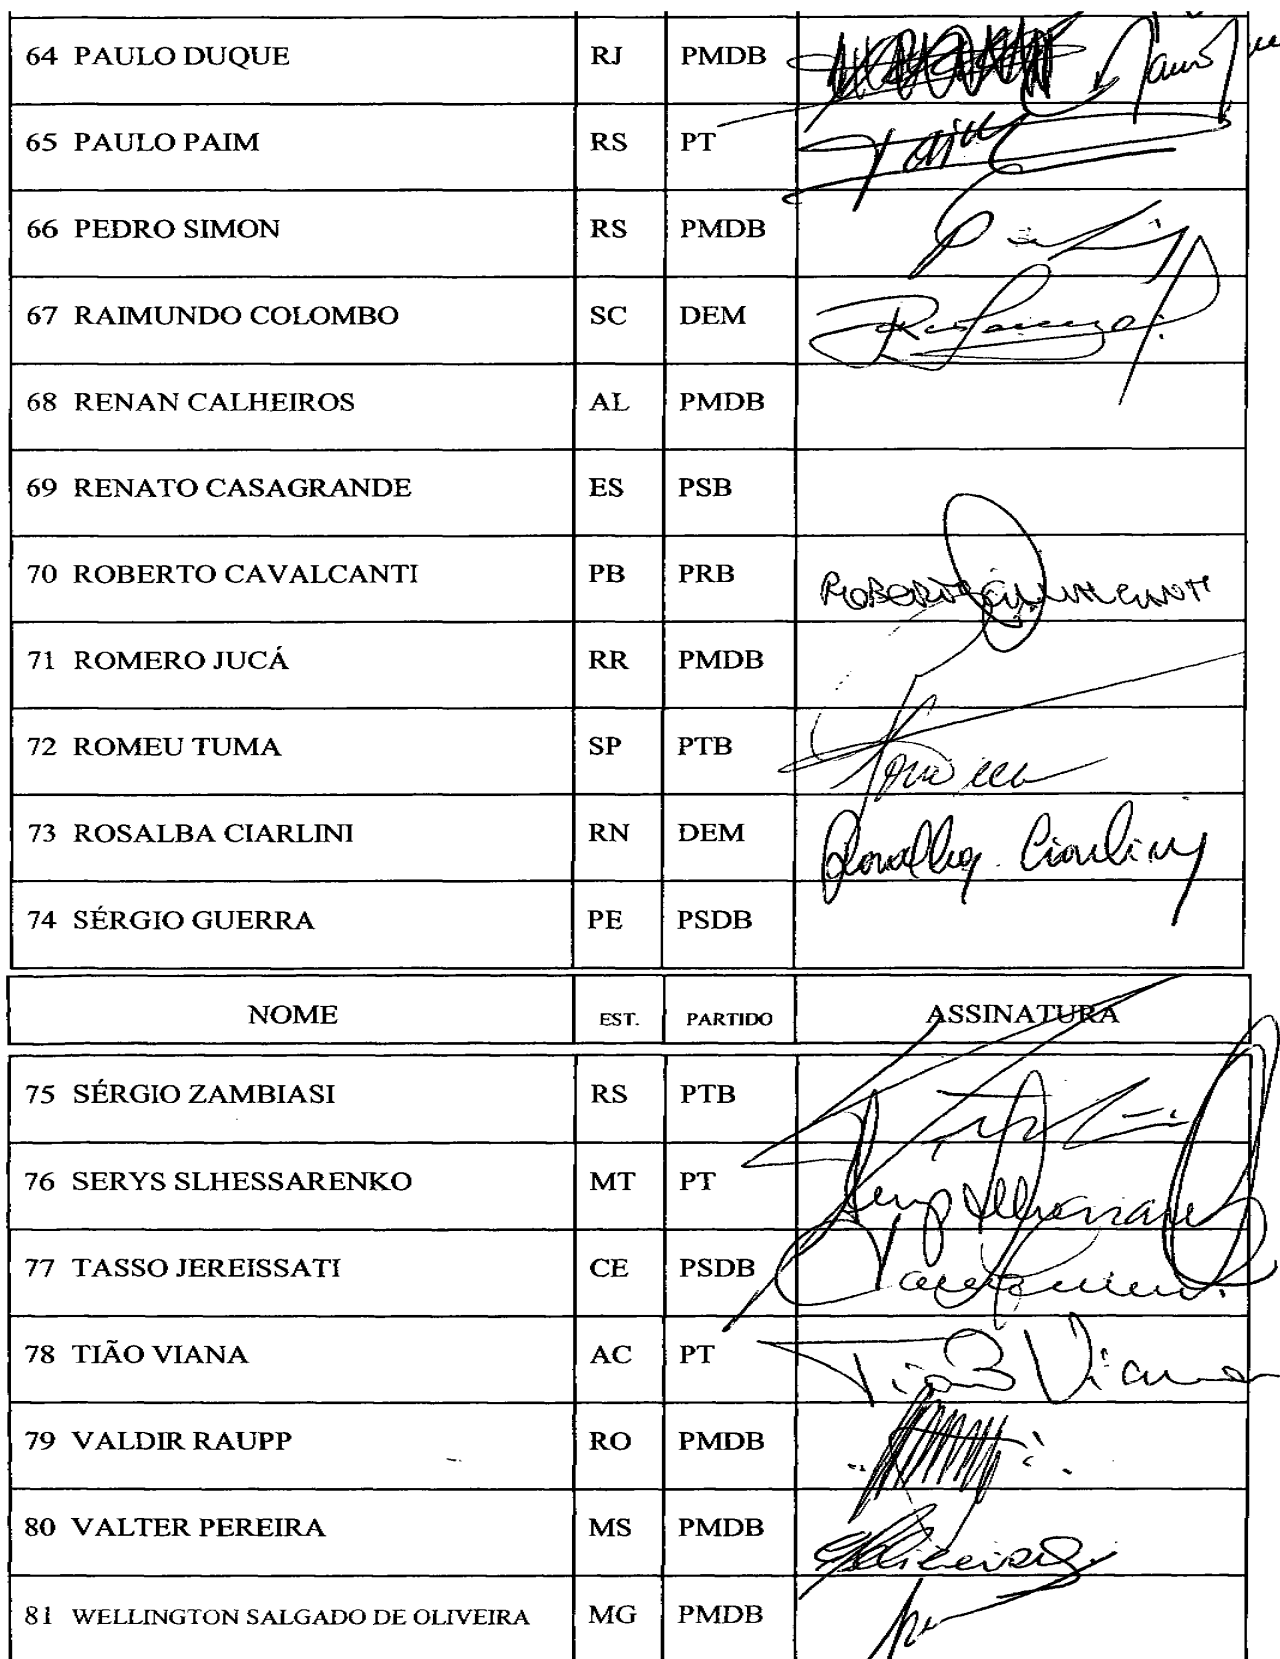 64 PAULO DUQUE RJ PMDB
65 PAULO PAIM RS PT Paim
66 PEDRO SIMON RS PMDB
67 RAIMUNDO COLOMBO SC DEM
68 RENAN CALHEIROS AL PMDB
69 RENATO CASAGRANDE ES PSB
70 ROBERTO CAVALCANTI PB PRB ROBERTO CAVALCANTI
71 ROMERO JUCÁ RR PMDB
72 ROMEU TUMA SP PTB
73 ROSALBA CIARLINI RN DEM Rosalba Ciarlini
74 SÉRGIO GUERRA PE PSDB
NOME EST. PARTIDO ASSINATURA
75 SÉRGIO ZAMBIASI RS PTB
76 SERYS SLHESSARENKO MT PT
77 TASSO JEREISSATI CE PSDB
78 TIÃO VIANA AC PT Tião Viana
79 VALDIR RAUPP RO PMDB
80 VALTER PEREIRA MS PMDB
81 WELLINGTON SALGADO DE OLIVEIRA MG PMDB